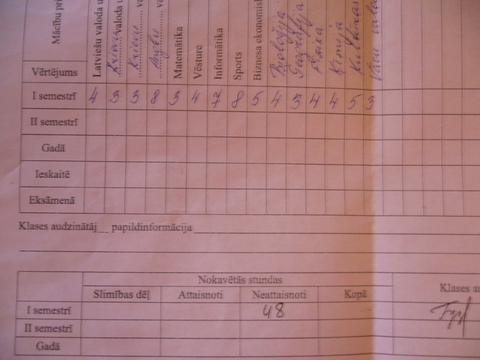 Mācību pri
Vērtējums
Latviešu valoda u
valoda u
va
va
Matemātika
Vēsture
Informātika
Sports
Biznesa ekonomisk
Bioloģija
Ģeogrāfija
Fizika
Ķīmija
I semestrī 4 3 3 8 3 4 7 8 5 4 3 4 4 5 3
II semestrī
Gadā
Ieskaitē
Eksāmenā
Klases audzinātāj__ papildinformācija
Nokavētās stundas
Slimības dēļ Attaisnoti Neattaisnoti Kopā Klases a
I semestrī 48
II semestrī
Gadā